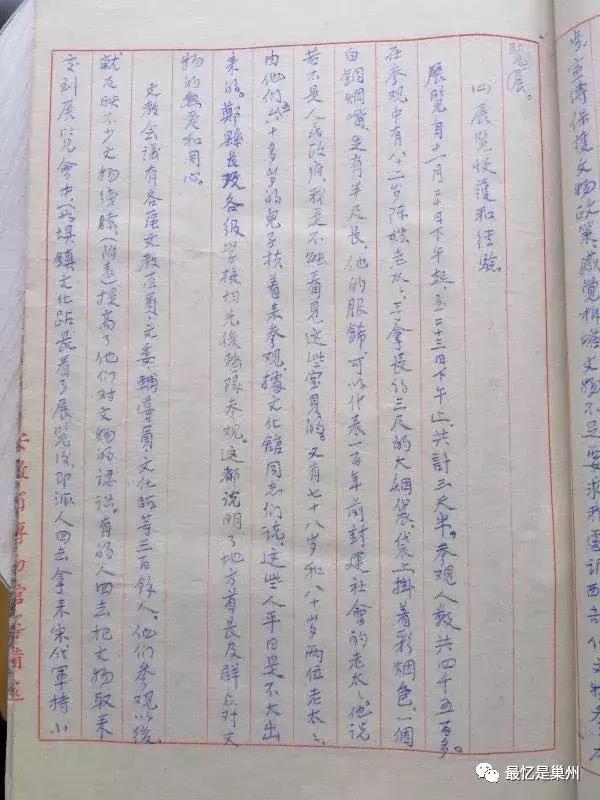 览展。
(二)展览收获和经验
展览自十一月二十日下午起,至二十三日下午止,共计三天半。参观人数共四千五百多。
在参观中有八十二岁陈姓老太:手拿长约三尺的大烟袋,袋上掛着彩烟包,一個
白铜烟嘴,足有半尺長,他的服飾,可以代表一百年前封建社會的老太:。他说
若不是人民政府,我是不能看見这些宝貝的。又有七十八岁和八十岁两位老太:,
由他们六十多岁的兒子扶着来参观,據文化館同志们说,这些人平日是不大出
来的。鄭縣長及各級学校均先後整隊参观。这都说明了地方首長及群众对文
物的熱爱和关心。
文教会議有各區文教委員、文委、輔导員、文化站等三百餘人。他们参观以後
就反映不少文物綫索,(附表)提高了他们对文物的認识。有的人回去把文物取来
交到展览會中,填鎮文化站長看了展览後,即派人回去拿来宋代軍持小
宣傳保護文物政策,感觉
安徽省博物館籌備處
最忆是巢州